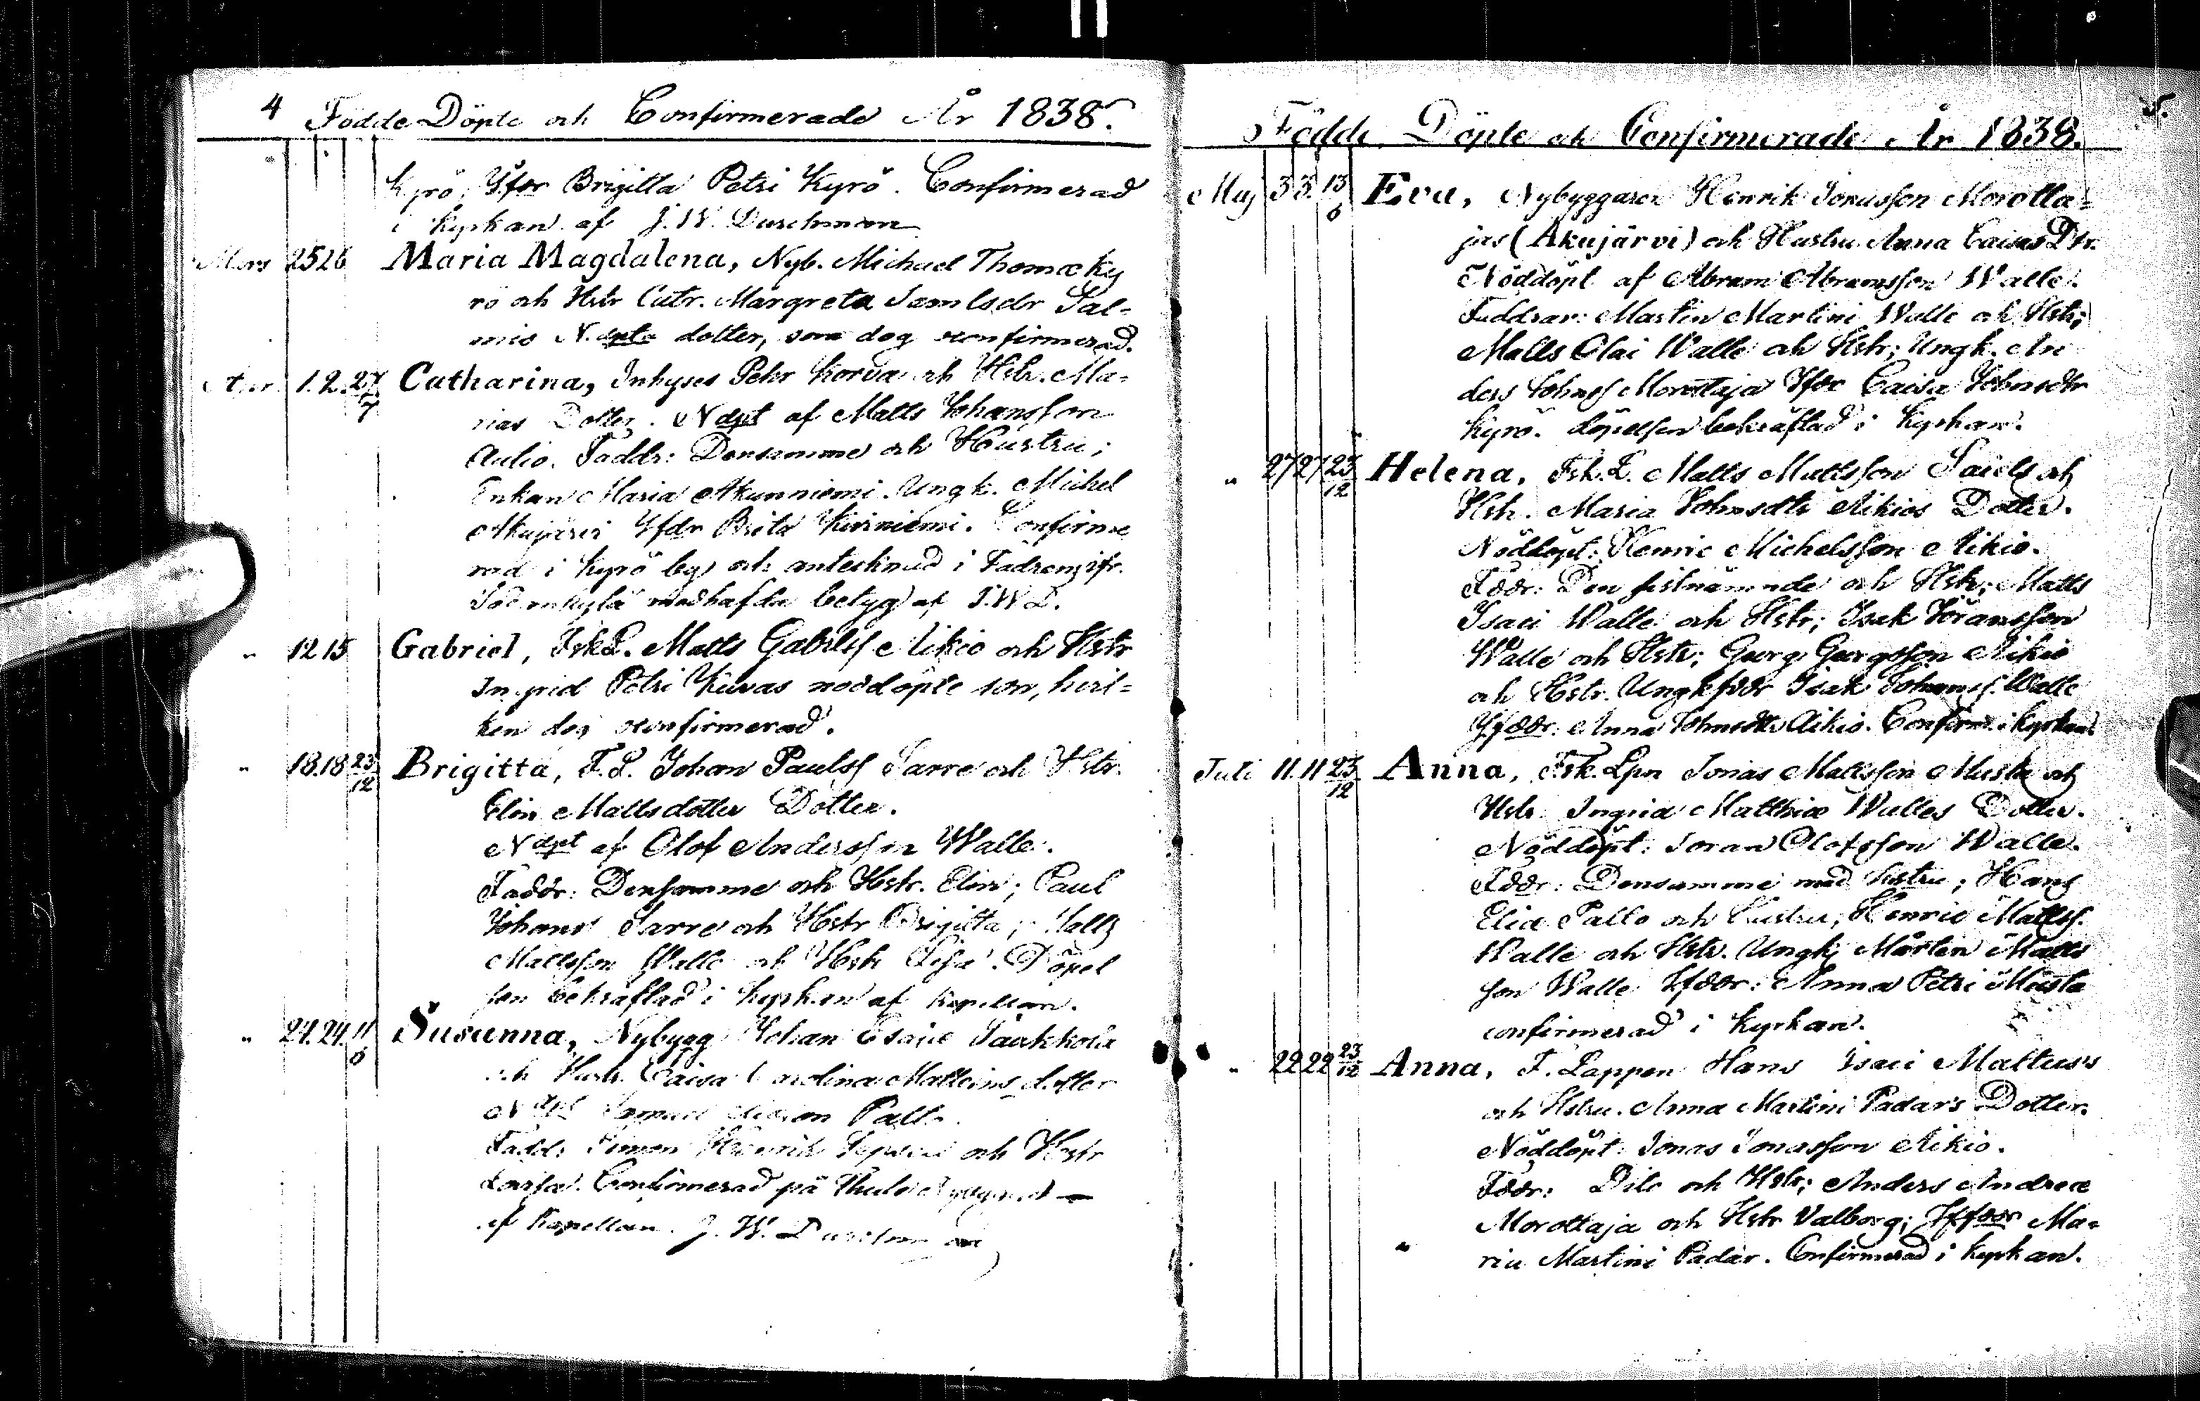 4 Födde Döpte och Confirmerade År 1838.
Kyrö, Yfdr Brigitta Petri Kyrö. Confirmerad
i Kyrkan af J. W. Durchman
Mars 25 26 Maria Magdalena, Nyb. Michael Thomæ Ky
rö och Hstr Catr. Margreta Samlsdr Sal-
mis N.döpta dotter, som dog oconfirmerad.
1. 2. 27/7 Catharina, Inhyses Pehr Korva och Hstr. Ma-
rias Dotter. Ndpt af Matts Johansson
Aulio. Faddr: Densamme och Hustru;
Enkan Maria Akunniemi. Ungk. Michel
Akujärvi Yfdr Brita Kiviniemi. Confirme
rad i Kyrö by och antecknad i Fädrens ifr.
Sodankylä medhafda betyg af J. W. D.
" 12 15 Gabriel, Fsk.L. Matts Gabrlss Aikio och Hstr
Ingrid Petri Kuvas nöddöpte son, hvil-
ken dog oconfirmerad.
" 18. 18 23/12 Brigitta, F. L. Johan Paulss Sarre och Hstr.
Elin Mattsdotter Dotter.
Ndpt af Olof Andersson Walle.
Faddr: Densamme och Hstr. Elin; Paul
Johans Sarre och Hstr Brigitta; Matts
Mattsson Walle och Hstr Lisa. Döpel
sen bekräftad i Kyrkan af Kapellan.
" 24. 24. 11/6 Susanna, Nybygg Johan Esaiæ
och Hustr. Caisa Carolina Matteins dotter
Ndpt Samuel Palto.
Fadd: Simon Henrik och Hstr
Lovisa. Confirmerad på
af Kapellan. J. W. Durchman
5.
Födde Döpte och Confirmerade År 1838.
Maj 3 3. 13/6 Eva, Nybyggaren Henrik Jonasson Morotta-
jas (Akujärvi) och Hustru Anna Caisas Dtr.
Nöddöpt af Abram Abramsson Walle.
Faddrar: Martin Martini Walle och Hstr;
Matts Olai Walle och Hstr; Ungk. An
ders Johnss Morottaja Yfdr Caisa Johnsdtr
Kyrö. Döpelsen bekräftad i Kyrkan.
" 27 27 23/12 Helena, Fsk. L. Matts Mattsson Saiels och
Hstr. Maria Johnsdtr Aikios Dotter.
Nöddöpt: Henric Michelsson Aikio.
Fddr: Den förstnämnde och Hstr; Matts
Isaci Walle och Hstr; Isak Göransson
Walle och Hstr; Georg Georgsson Aikio
och Hstr. Ungkfddr Isak Johanss. Walle
Yfddr: Anna Johnsdtr Aikio. Confirm. i Kyrkan
Juli 11. 11 23/12 Anna, Fsk. Lpn Jonas Mattsson Musta och
Hstr Ingrid Matthiæ Walles Dotter.
Nöddöpt: Joran Olofsson Walle.
Fddr: Densamme med hustru; Hans
Eliæ Palto och Hustru; Henric Mattss.
Walle och Hstr. Ungk; Mårten Matts
son Walle Yfddr: Anna Petri Musta
confirmerad i Kyrkan.
" 22 22 23/12 Anna, F. Lappen Hans Isaci Mattus's
och Hstru. Anna Martini Padars Dotter.
Nöddöpt: Jonas Jonasson Aikio.
Fddr: Dito och Hstr; Anders Andreæ
Morottaja och Hstr Valborg; Yfddr Ma-
ria Martini Padar. Confirmerad i Kyrkan.